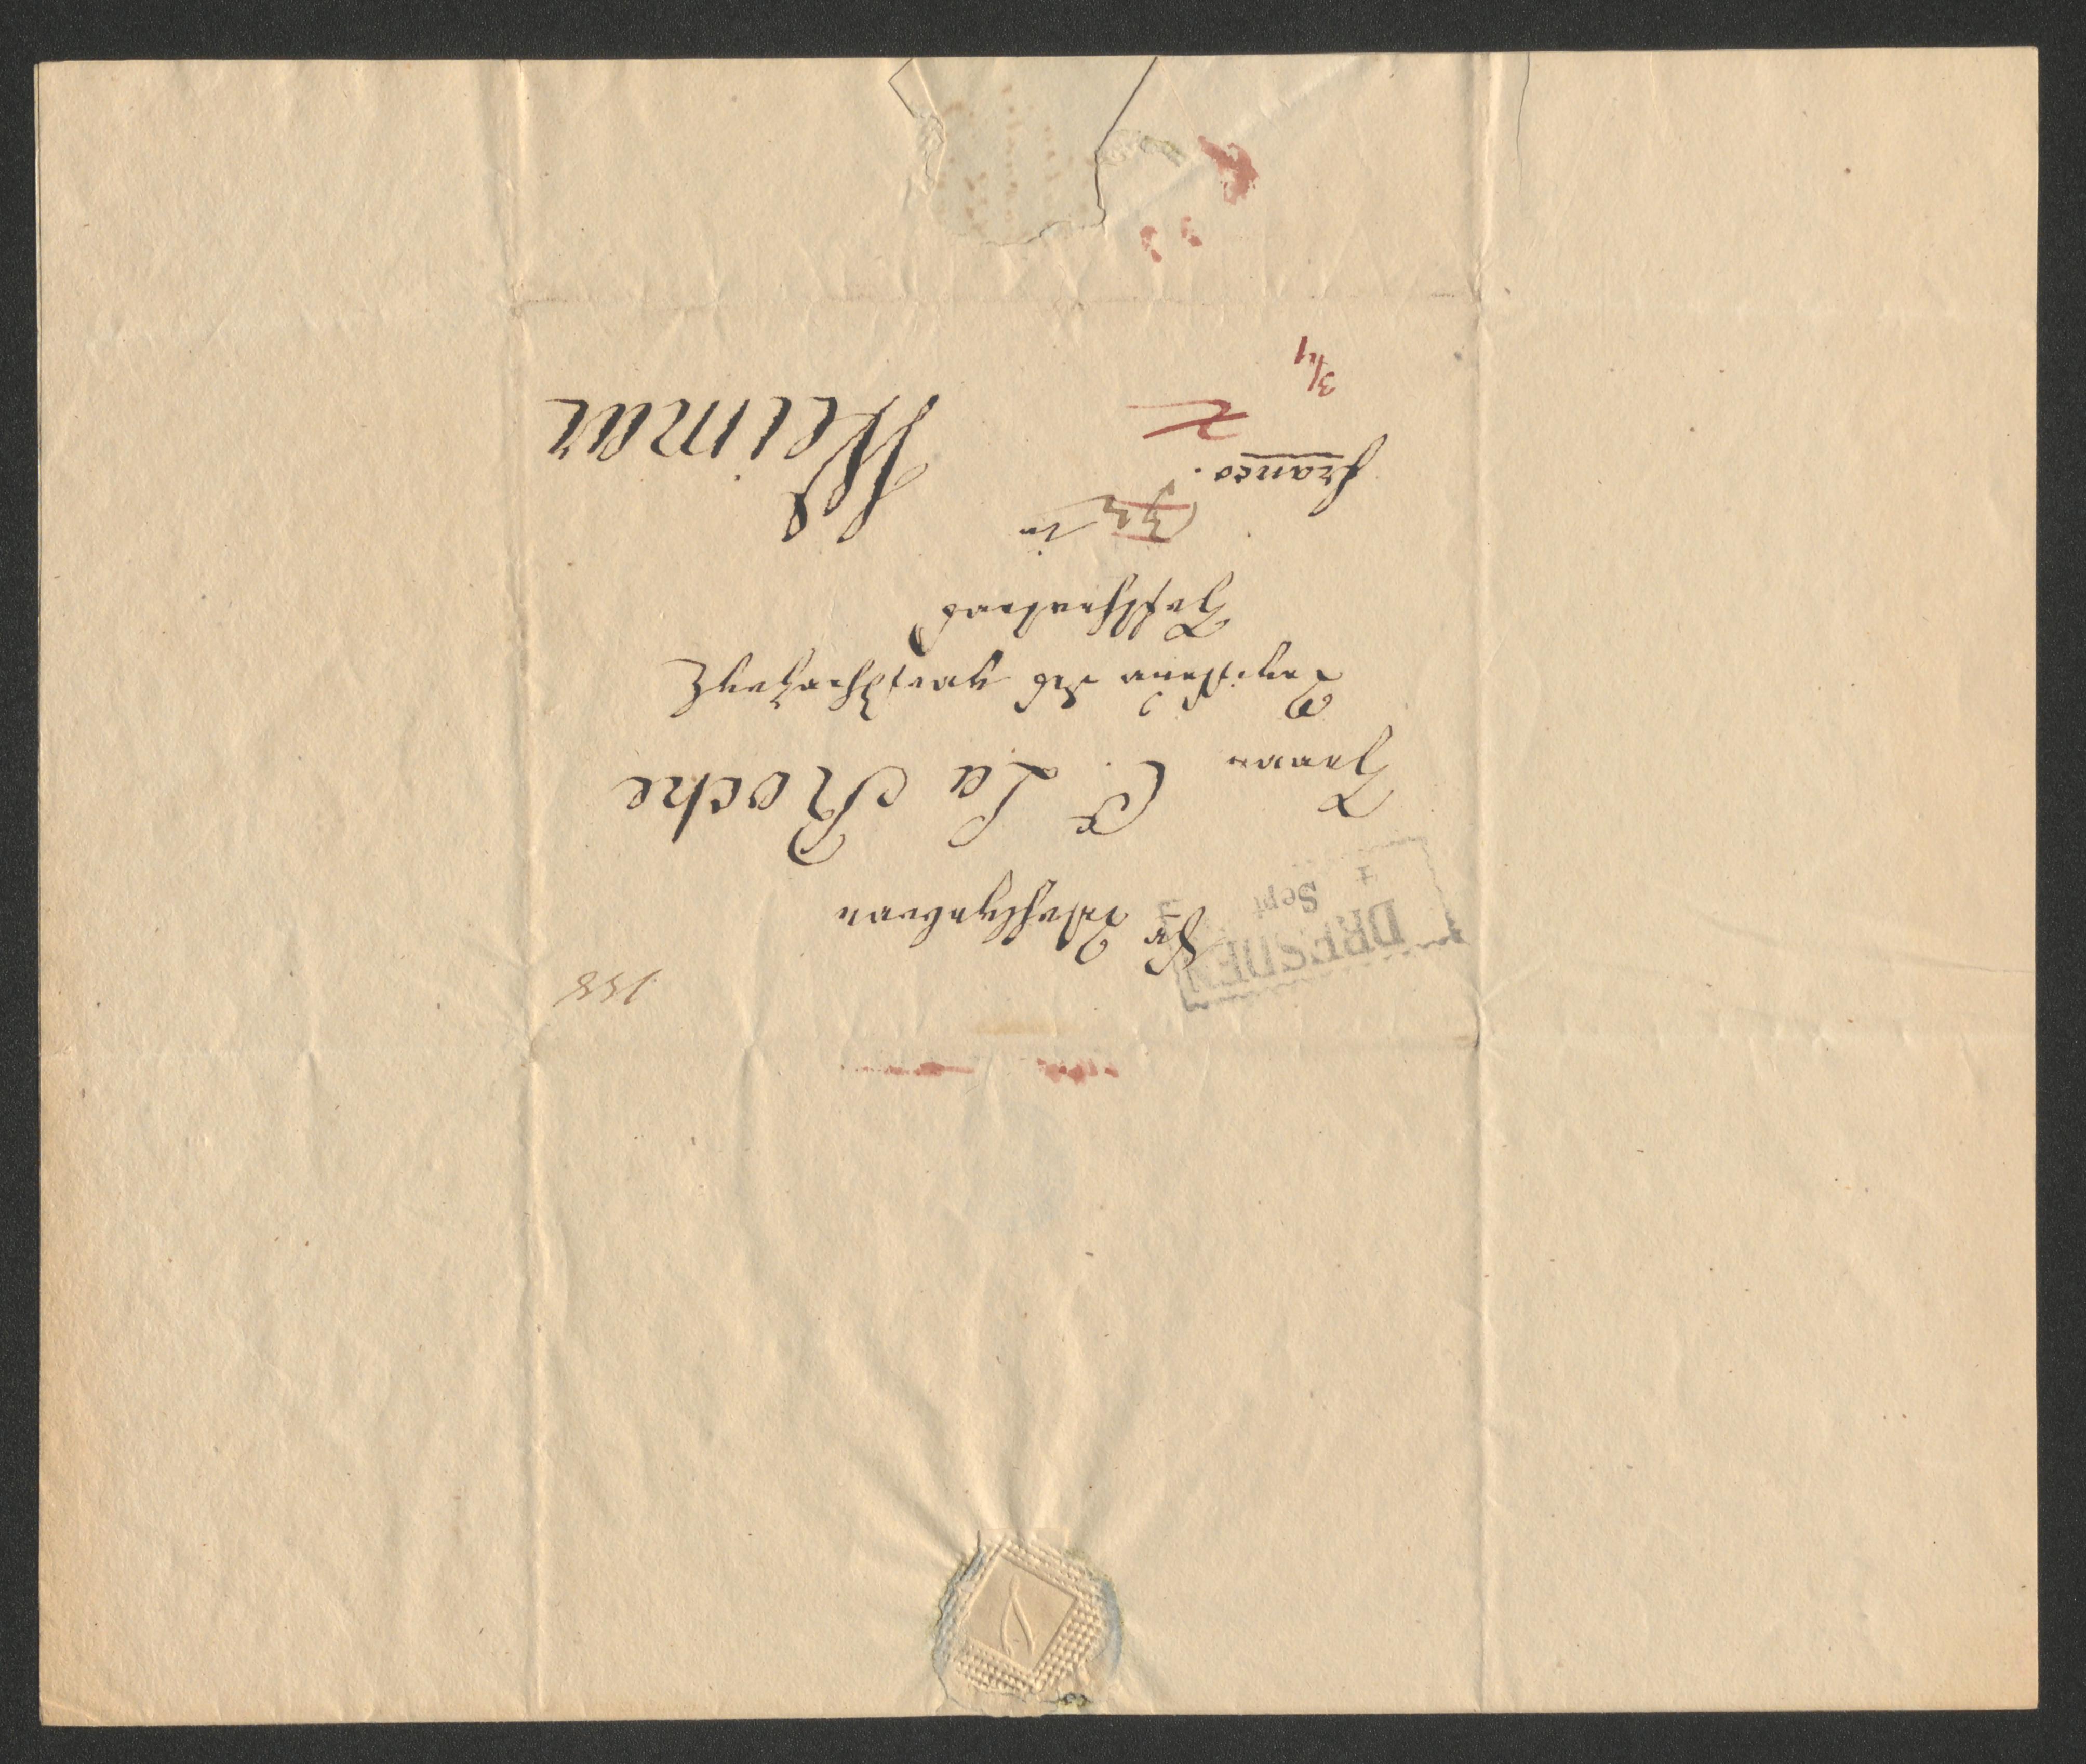 158
DRESDEN
Sept
Sr Wohlgeboren
Herrn C. La Roche
Regisseur des großherzogl
Hoftheaters
in
franco.
Weimar
3/4